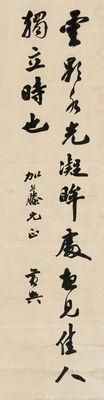 雲影水光凝眸處見佳人
獨立時也
加藤兄正 黃興